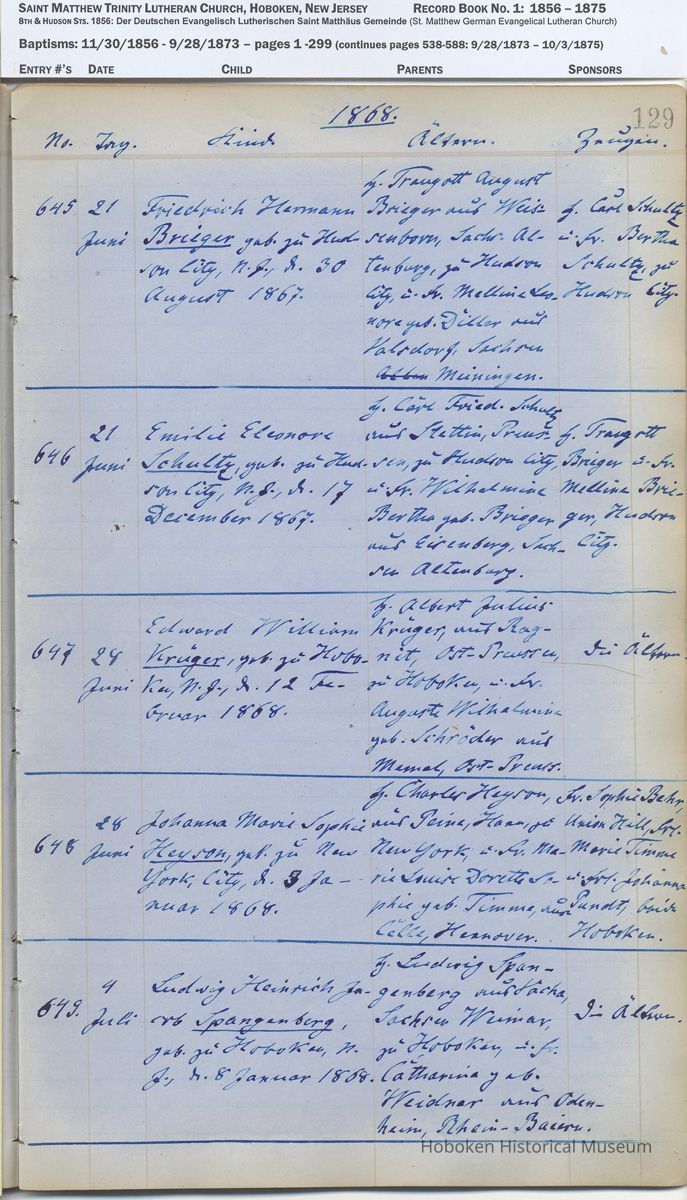 SAINT MATTHEW TRINITY LUTHERAN CHURCH, HOBOKEN, NEW JERSEY RECORD BOOK NO. 1: 1856 – 1875
8TH & HUDSON STS. 1856: Der Deutschen Evangelisch Lutherischen Saint Matthäus Gemeinde (St. Matthew German Evangelical Lutheran Church)
Baptisms: 11/30/1856 - 9/28/1873 – pages 1 -299 (continues pages 538-588: 9/28/1873 – 10/3/1875)
ENTRY #'S DATE CHILD PARENTS SPONSORS
1868. 129
No. Tag. Kind. Ältern. Zeugen.
645
21
Juni
Friedrich Hermann
Brieger geb. zu Hud-
son City, N.J., d. 30
August 1867.
H. Traugott August
Brieger aus Weis-
senborn, Sachs. Al-
tenburg, zu Hudson
City, u. Fr. Melline Leo-
nore geb. Diller aus
Volsdorf, Sachsen
Meiningen.
H. Carl Schultz
u. Fr. Bertha
Schultz, zu
Hudson City.
646
21
Juni
Emilie Eleonore
Schultz, geb. zu Hud-
son City, N.J., d. 17
December 1867.
H. Carl Fried. Schultz
aus Stettin, Preus-
sen, zu Hudson City,
u. Fr. Wilhelmine
Bertha geb. Brieger
aus Eisenberg, Sach-
sen Altenburg.
H. Traugott
Brieger u. Fr.
Melline Brie-
ger, Hudson
City.
647
28
Juni
Edward William
Krüger, geb. zu Hobo-
ken, N.J., d. 12 Fe-
bruar 1868.
H. Albert Julius
Krüger, aus Rag-
nit, Ost-Preussen,
zu Hoboken, u. Fr.
Auguste Wilhelmine
geb. Schröder aus
Memel, Ost-Preuss.
Die Ältern.
648
28
Juni
Johanna Marie Sophie
Heyson, geb. zu New
York, City, d. 3 Ja-
nuar 1868.
H. Charles Heyson,
aus Peine, Hann., zu
New York, u. Fr. Ma-
rie Louise Dorette So-
phie geb. Timme, aus
Celle, Hannover.
Fr. Sophie Behr,
Union Hill, Frl.
Marie Timme
u. Frl. Johanna
Pundt, beide
Hoboken.
649.
4
Juli
Ludwig Heinrich Ja-
cob Spangenberg,
geb. zu Hoboken, N.
J., d. 8 Januar 1868.
H. Ludwig Span-
genberg aus Vacha,
Sachsen Weimar,
zu Hoboken, u. Fr.
Catharina geb.
Weidner aus Oden-
heim, Rhein-Baiern.
Die Ältern.
Hoboken Historical Museum